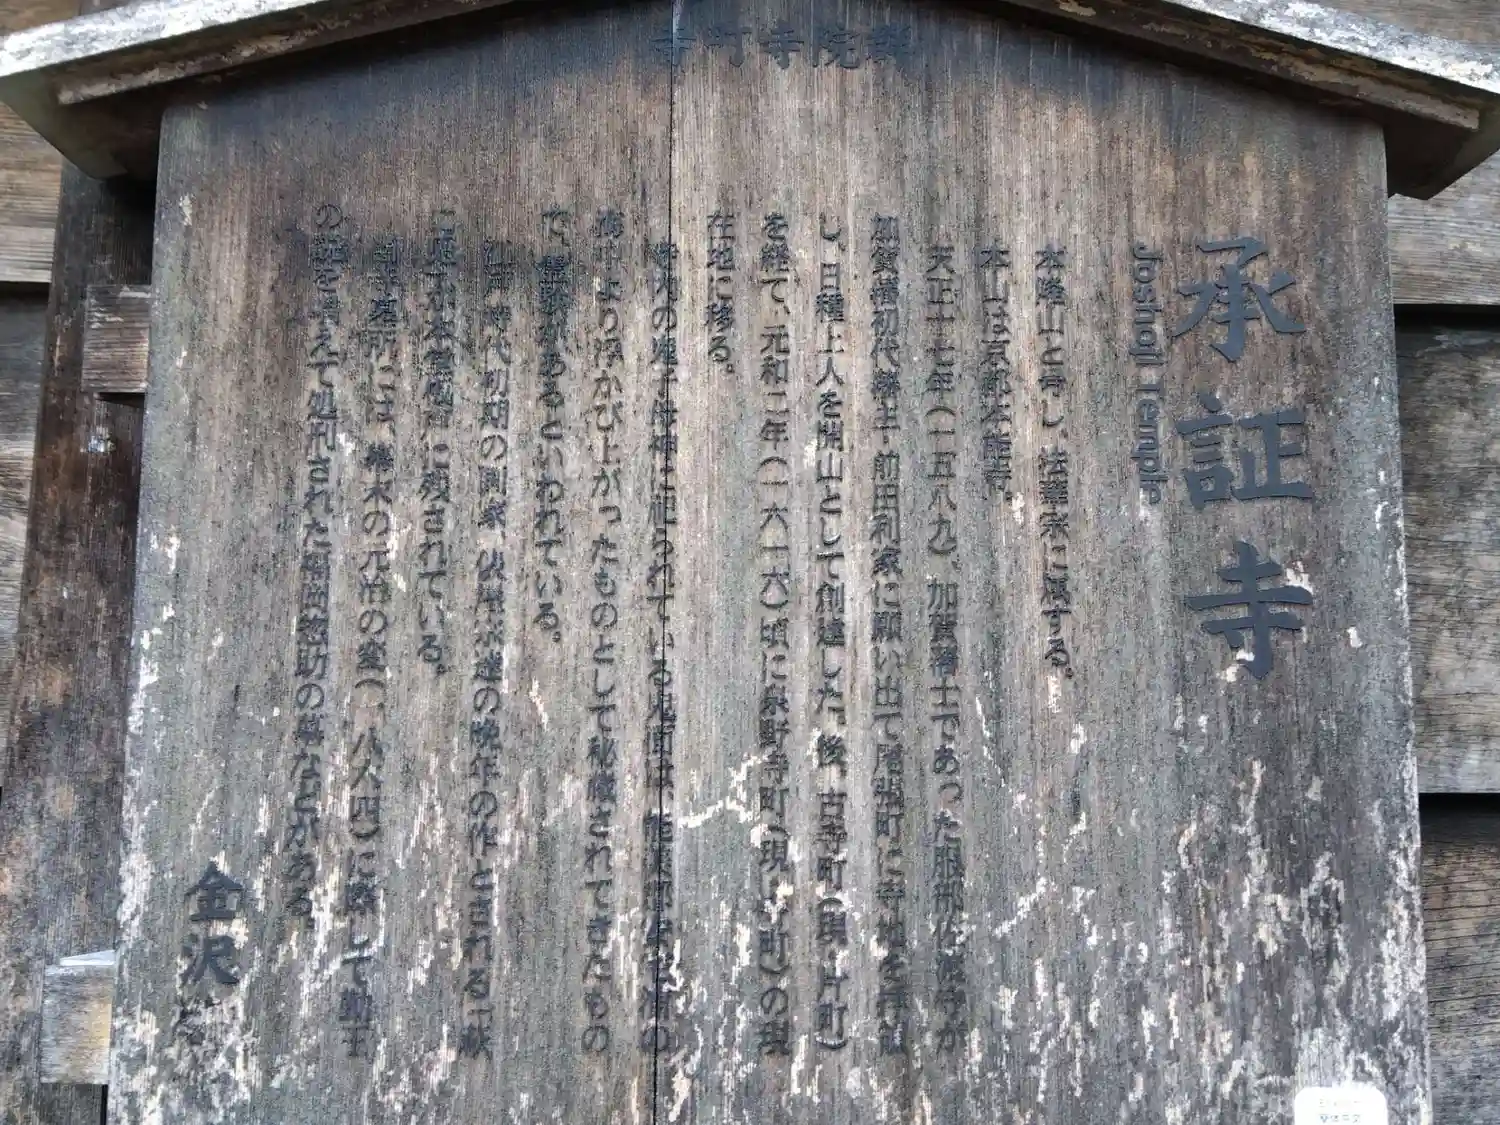 寺町寺院群
承証寺
Joshoji Temple
本隆山と号し、法華宗に属する。
本山は京都本能寺。
天正十七年(一五八九)、加賀藩士であった服部佐渡守が
加賀藩初代藩主・前田利家に願い出て尾張町に寺地を拝領
し、日種上人を開山として創建した。後、古寺町(現・片町)
を経て、元和二年(一六一六)頃に泉野寺町(現・寺町)の現
在地に移る。
の鬼子母神に祀られている鬼面は、能
海中より浮かび上がったものとして秘蔵されてきたもの
で、霊験があるといわれている。
江戸時代初期の画家・俵屋宗達の晩年の作とされる「萩
に残されている。
墓所には、幕末の元治の変(一八六四)に際して勤王
の説を唱えて処刑された福岡惣助の墓などがある。
金沢市